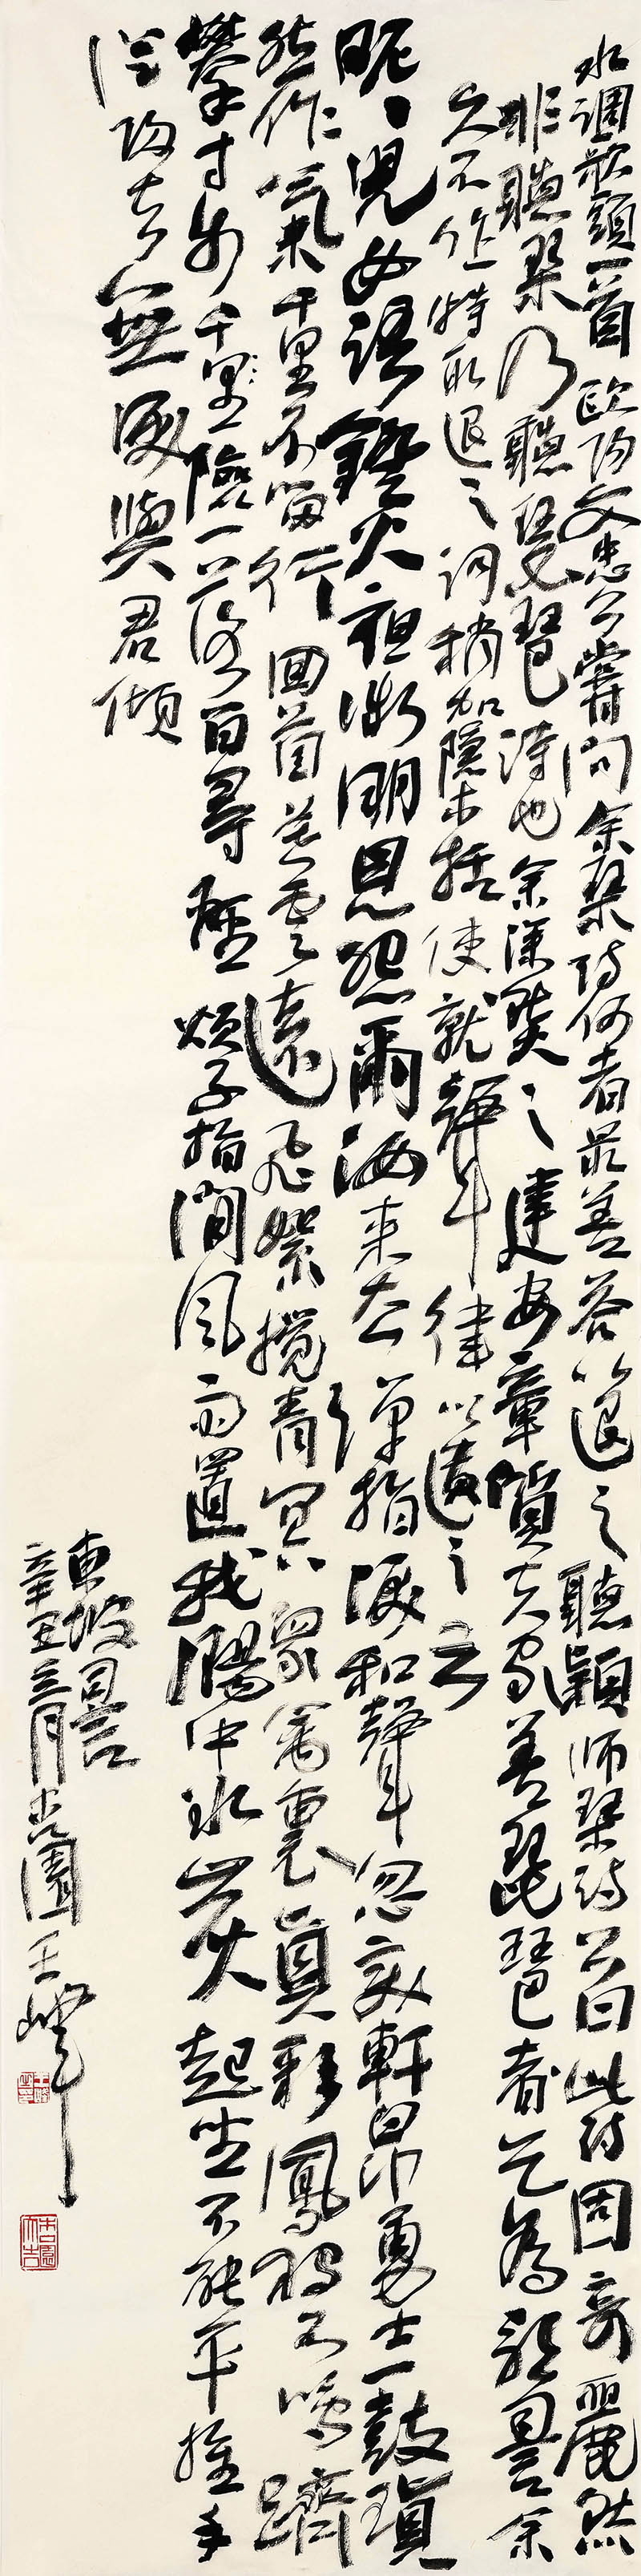 水調歌頭一首 歐陽文忠公嘗問余琴詩何者最善答以退之聽穎師琴詩公曰此詩固奇麗然
非聽琴乃聽琵琶詩也余深然之建安章質夫家善琵琶者乞為歌詞余
久不作特取退之詞稍加隱括使就聲律以遺之云
昵昵兒女語燈火夜微明恩怨爾汝來去彈指淚和聲忽變軒昂勇士一鼓填
然作氣千里不留行回首暮雲遠飛絮攪青冥眾禽裏真彩鳳獨不鳴躋
攀寸步千里險一落百尋輕煩子指間風雨置我腸中冰炭起坐不能平推手
從歸去無淚與君傾
東坡詞
辛丑三月
園王峰